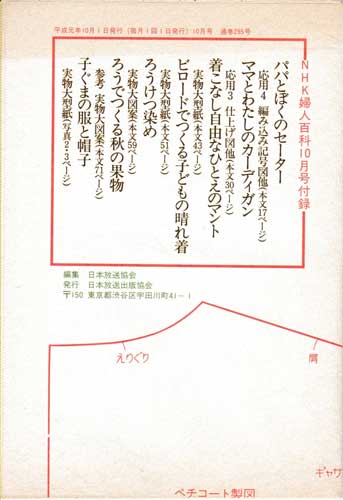 平成元年10月1日発行(毎月1回1日発行)10月号 通巻295号
NHK婦人百科10月号付録
パパとぼくのセーター
応用4 編み込み記号図他(本文17ページ)
ママとわたしのカーディガン
応用3 仕上げ図他(本文30ページ)
着こなし自由なひとえのマント
実物大型紙(本文43ページ)
ビロードでつくる子どもの晴れ着
実物大型紙(本文51ページ)
ろうけつ染め
実物大図案(本文59ページ)
ろうでつくる秋の果物
参考 実物大図案(本文71ページ)
子ぐまの服と帽子
実物大型紙(写真2・3ページ)
編集 日本放送協会
発行 日本放送出版協会
〒150 東京都渋谷区宇田川町41-1
えりぐり
肩
ギャザ
ペチコート製図